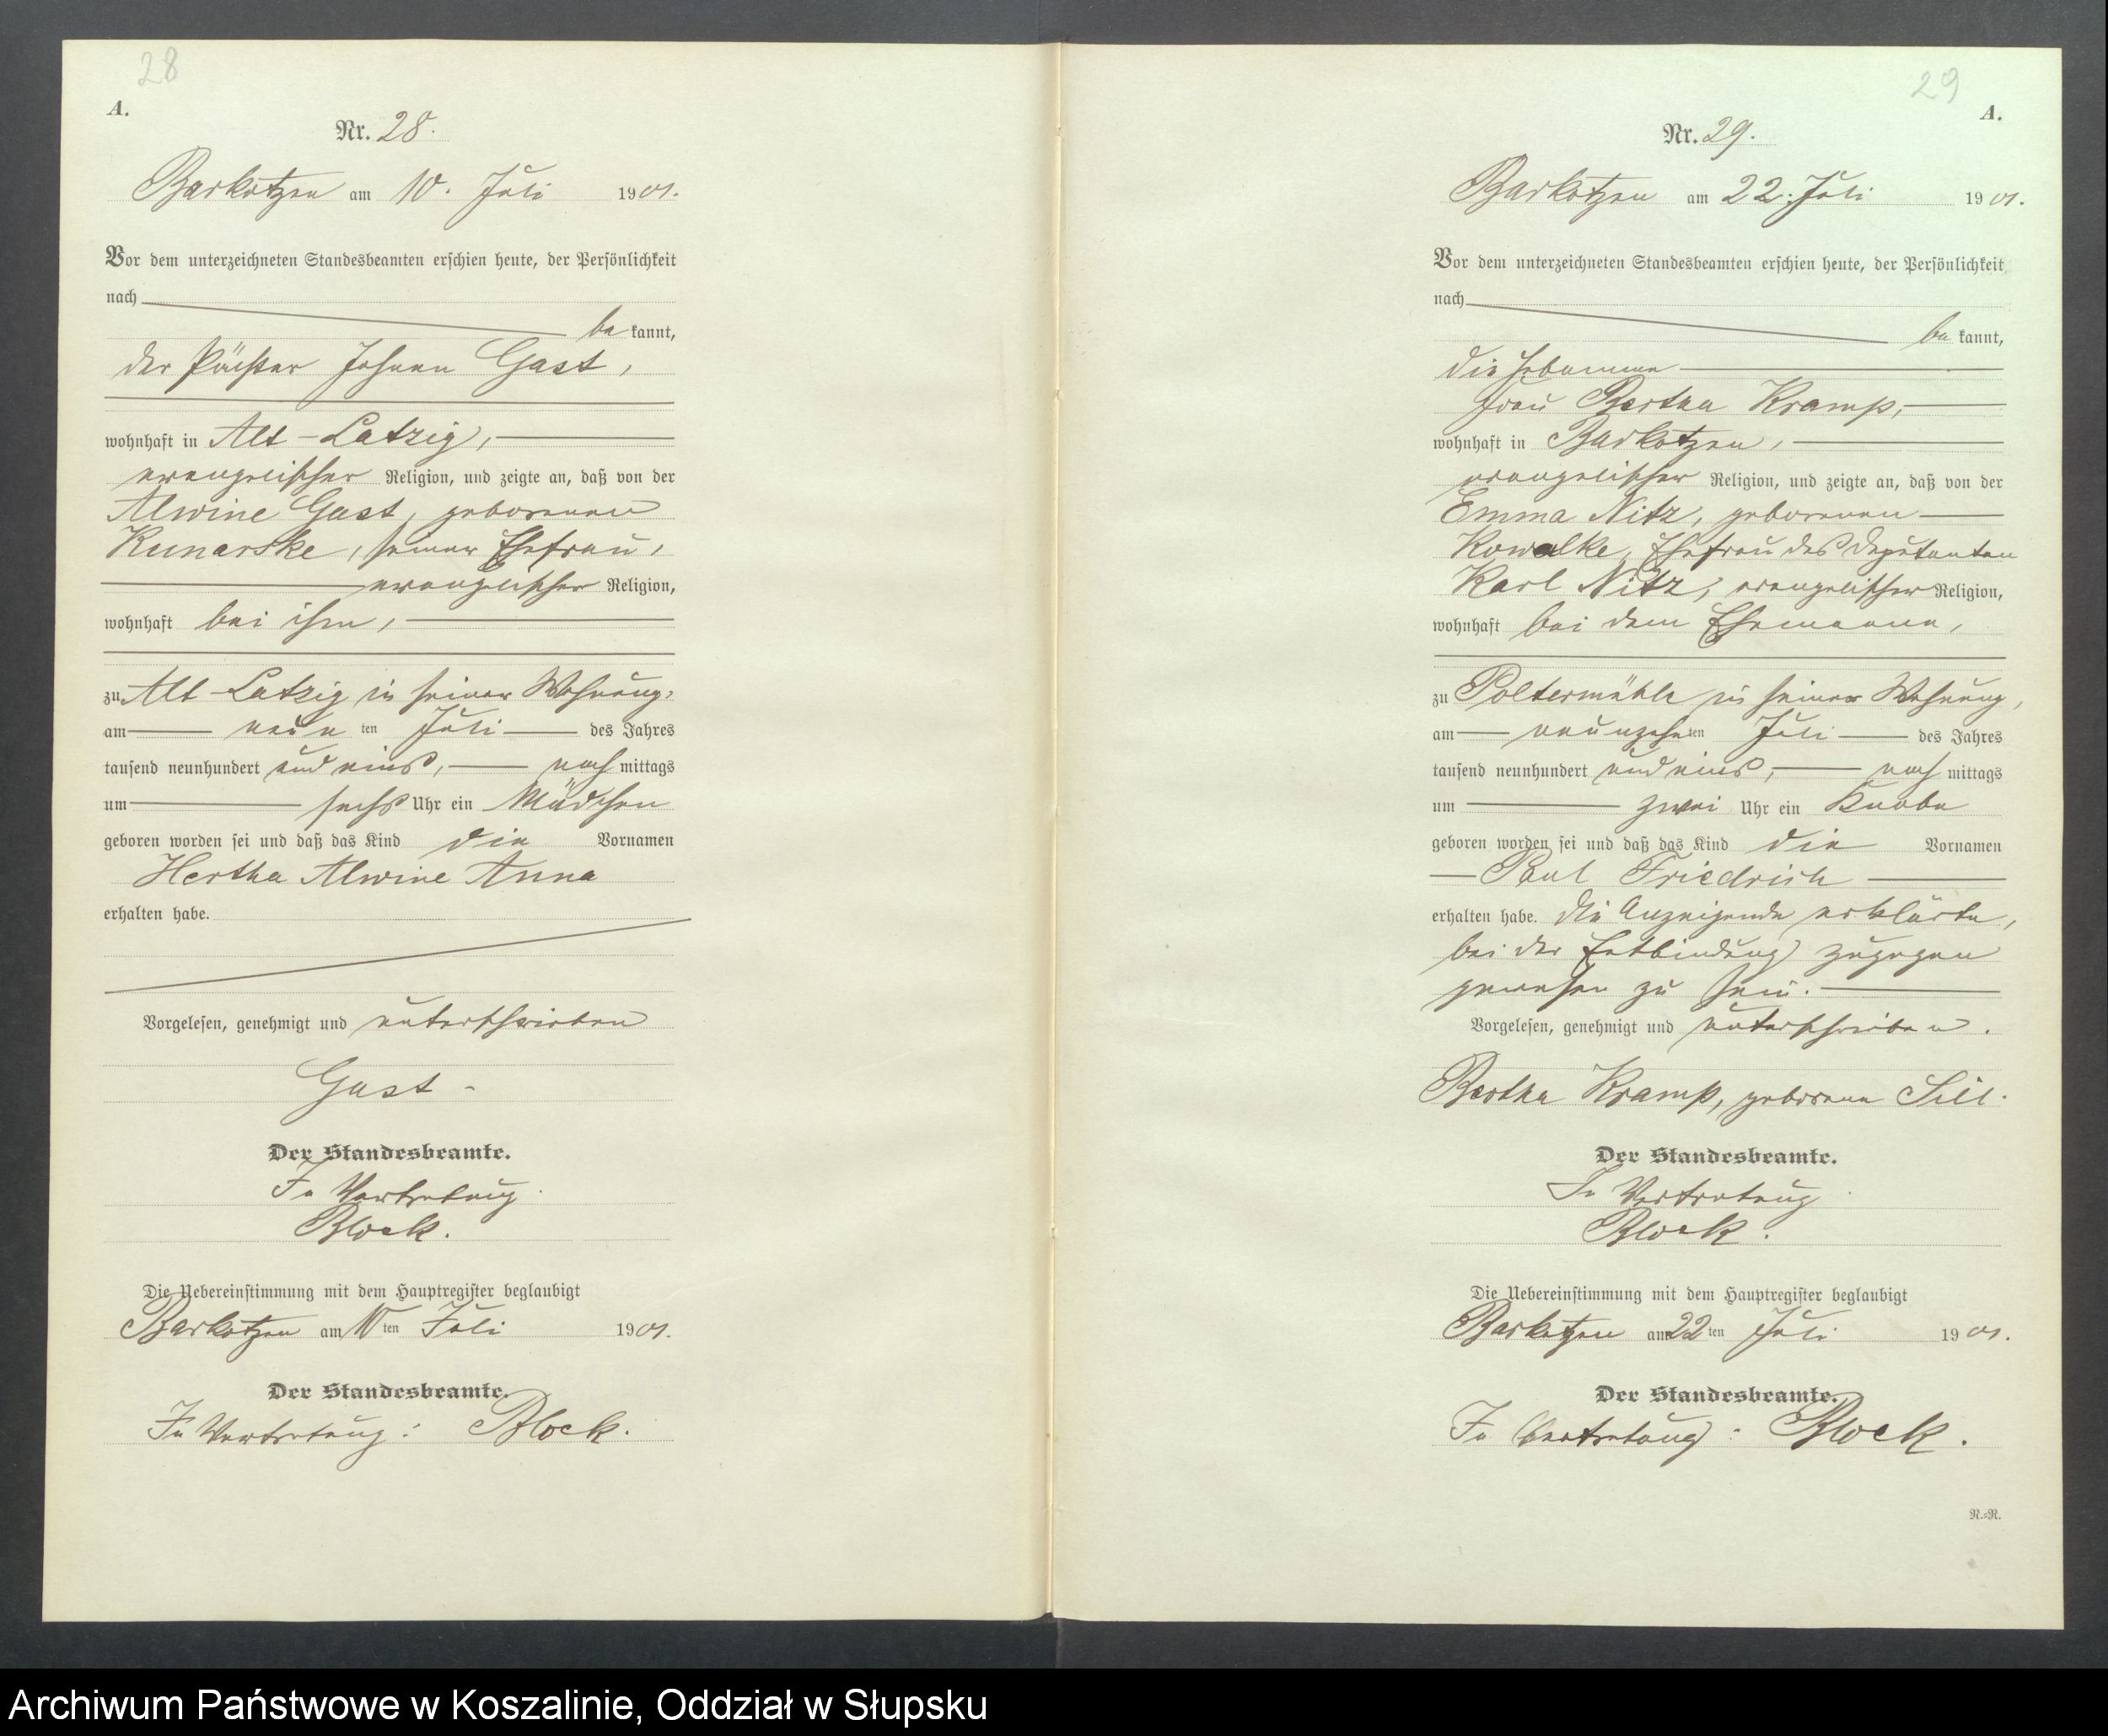 28
A.
Nr. 28.
Barkotzen am 10. Juli 1901.
Vor dem unterzeichneten Standesbeamten erschien heute, der Persönlichkeit
nach
be kannt,
der Pächter Johann Gast,
wohnhaft in Alt-Latzig,
evangelischer Religion, und zeigte an, daß von der
Alwine Gast, geborenen
Kunarske, seiner Ehefrau,
evangelischer Religion,
wohnhaft bei ihm,
zu Alt-Latzig in seiner Wohnung,
am neun ten Juli des Jahres
tausend neunhundert und eins, nach mittags
um sechs Uhr ein Mädchen
geboren worden sei und daß das Kind die Vornamen
Hertha Alwine Anna
erhalten habe.
Vorgelesen, genehmigt und unterschrieben
Gast
Der Standesbeamte.
In Vertretung
Block.
Die Uebereinstimmung mit dem Hauptregister beglaubigt
Barkotzen am 10 ten Juli 1901.
Der Standesbeamte.
In Vertretung: Block.
29
A.
Nr. 29.
Barkotzen am 22. Juli 1901.
Vor dem unterzeichneten Standesbeamten erschien heute, der Persönlichkeit
nach
be kannt,
die Hebamme
Frau Bertha Kramp,
wohnhaft in Barkotzen,
evangelischer Religion, und zeigte an, daß von der
Emma Nitz, geborenen
Kowalke, Ehefrau des Deputanten
Karl Nitz, evangelischer Religion,
wohnhaft bei dem Ehemanne,
zu Poltermühle in seiner Wohnung,
am neunzehn ten Juli des Jahres
tausend neunhundert und eins, nach mittags
um zwei Uhr ein Knabe
geboren worden sei und daß das Kind die Vornamen
Paul Friedrich
erhalten habe. Die Anzeigende erklärte,
bei der Entbindung zugegen
gewesen zu sein.
Vorgelesen, genehmigt und unterschrieben.
Bertha Kramp, geborene Sill.
Der Standesbeamte.
In Vertretung
Block.
Die Uebereinstimmung mit dem Hauptregister beglaubigt
Barkotzen am 22 ten Juli 1901.
Der Standesbeamte.
In Vertretung: Block.
N.=R.
Archiwum Państwowe w Koszalinie, Oddział w Słupsku